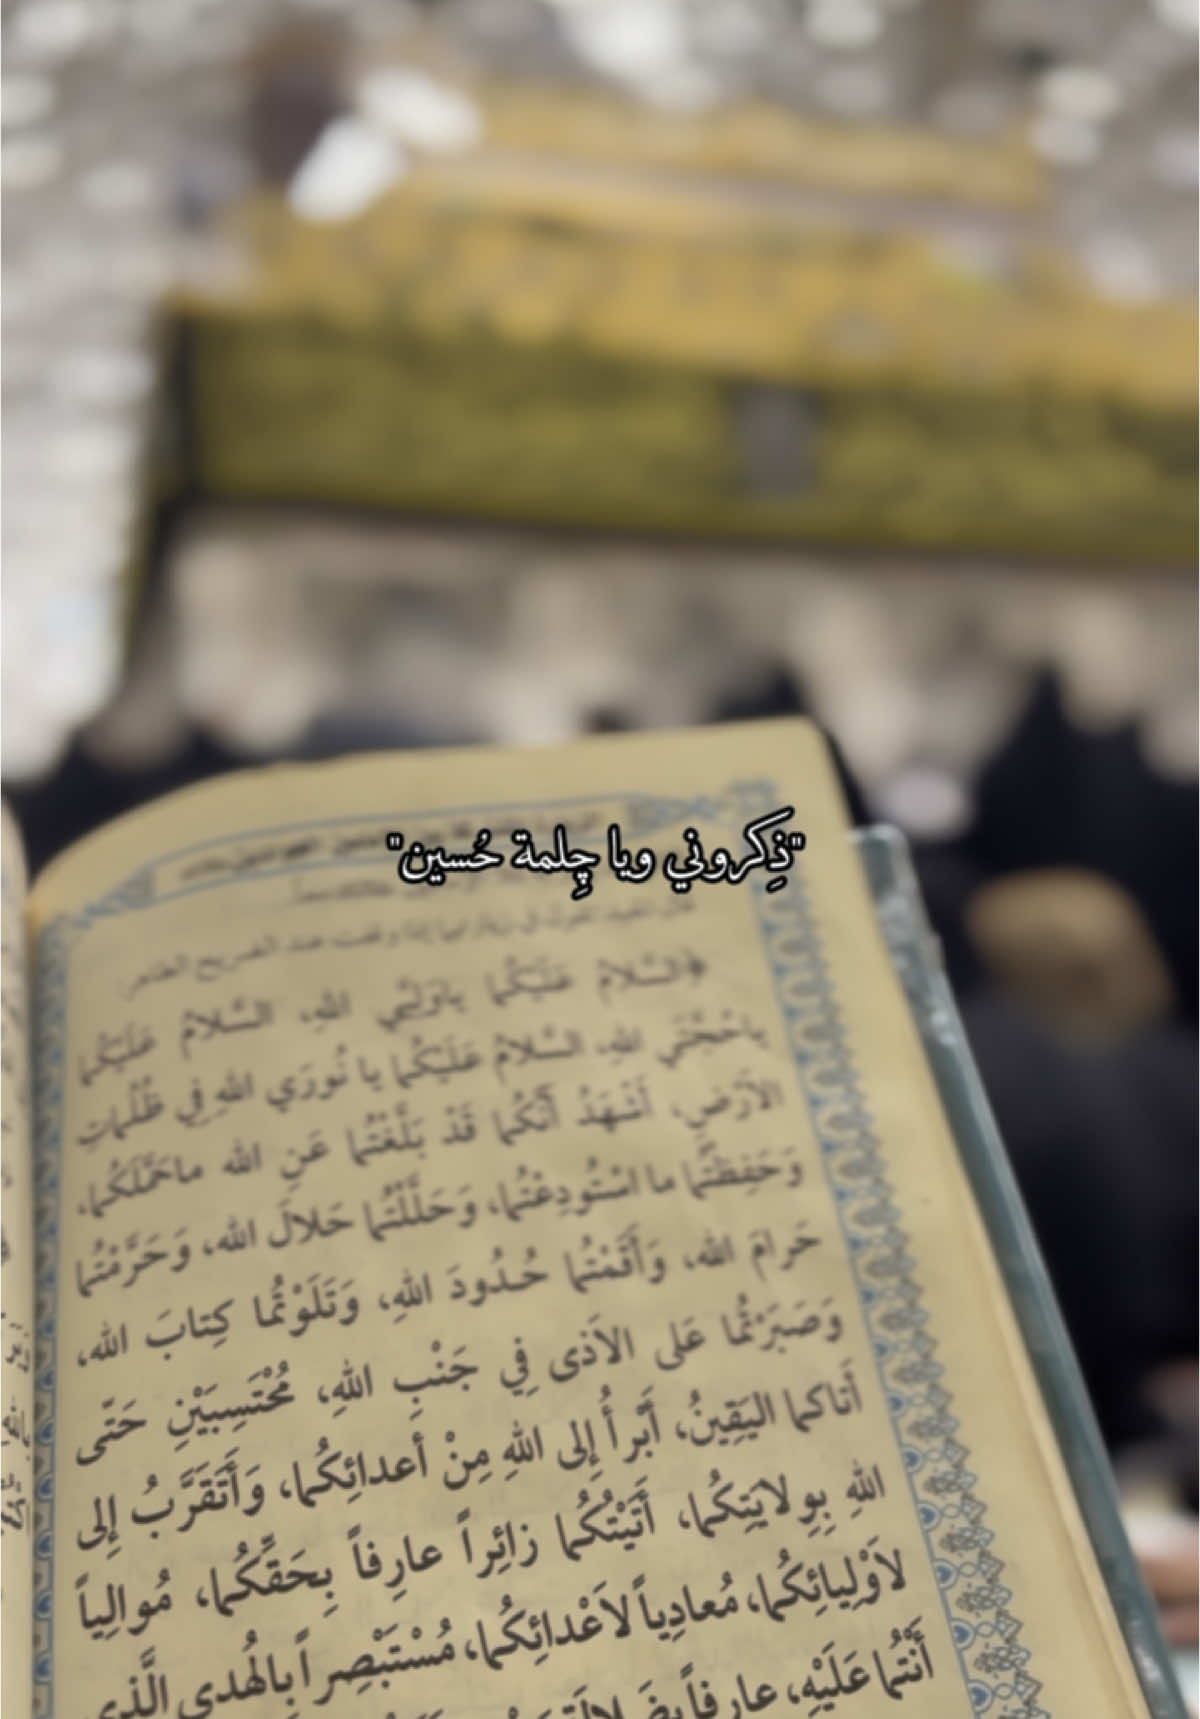 "ذِكروني ويا چِلمة حُسين"
السَّلامُ عَلَيْكُما ياوَلِيَّيِ اللهِ، السَّلامُ عَلَيْكُما
ياحُجَّتَيِ اللهِ، السَّلامُ عَلَيْكُما يا نُورَيِ اللهِ فِي ظُلُماتِ
الأَرْضِ، أَشْهَدُ أَنَّكُما قَدْ بَلَّغْتُما عَنِ الله ماحَمَّلَكُما،
وَحَفِظْتُما ما اسْتُودِعْتُما، وَحَلَّلْتُما حَلالَ الله، وَحَرَّمْتُما
حَرامَ الله، وَأَقَمْتُما حُدُودَ اللهِ، وَتَلَوْتُما كِتابَ الله،
وَصَبَرْتُما عَلى الاَذى فِي جَنْبِ اللهِ، مُحْتَسِبَيْنِ حَتّى
أَتاكما اليَقِينُ، أَبْرأُ إِلى اللهِ مِنْ أَعدائِكُما، وَأَتَقَرَّبُ إِلى
اللهِ بِوِلايَتِكُما، أَتَيْتُكُما زائِراً عارِفاً بِحَقِّكُما، مُوالِياً
لاَوْلِيائِكُما، مُعادِياً لاَعْدائِكُما، مُسْتَبْصِراً بِالهُدى الَّذِي
أَنْتُما عَلَيْهِ، عارِفاً